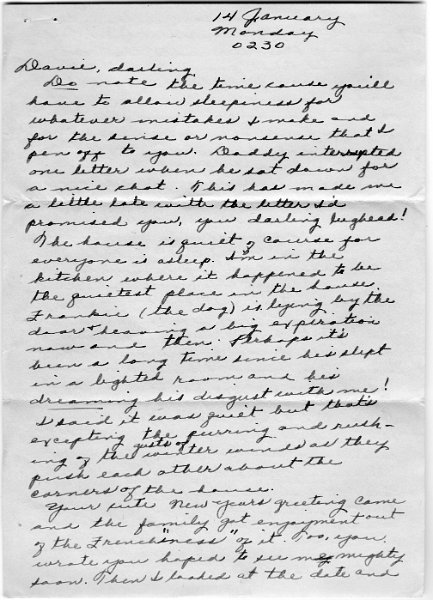 14 January
Monday
0230
Davie, darling
Do note the time cause you'll
have to allow sleepiness for
whatever mistakes I make and
for the sense or nonsense that I
pen off to you. Daddy interrupted
one letter when he sat down for
a nice chat. This has made me
a little late with the letter I'd
promised you, you darling lughead!
The house is quiet of course for
everyone is asleep. I'm in the
kitchen where it happened to be
the quietest place in the house.
Frankie (the dog) is lying by the
door & heaving a big expiration
now and then. Perhaps it's
been a long time since he's slept
in a lighted room and he's
dreaming his disgust with me!
I said it was quiet but that's
excepting the purring and rush-
ing of the gusts of winter winds as they
push each other about the
corners of the house.
Your cute New Years greeting came
and the family got enjoyment out
of the "Frenchness" of it. Too, you
wrote you hoped to see me mighty
soon. Then I looked at the date and